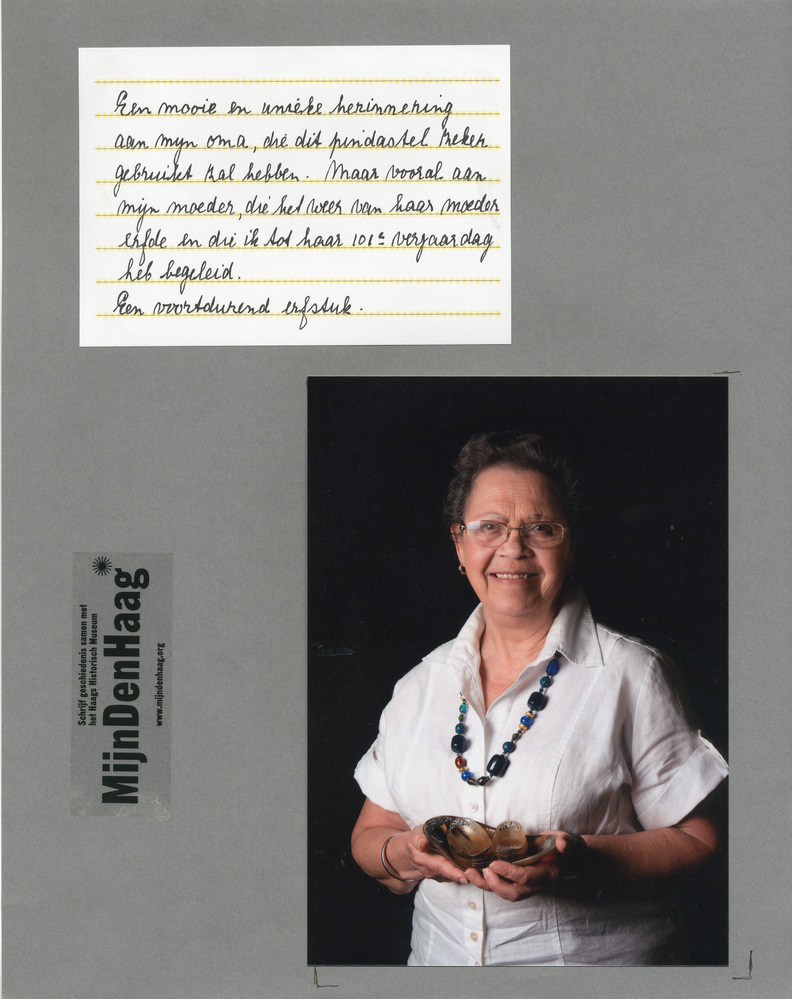 Een mooie en unieke herinnering
aan mijn oma, die dit pindastel zeker
gebruikt zal hebben. Maar vooral aan
mijn moeder, die het weer van haar moeder
erfde en die ik tot haar 101e verjaardag
heb begeleid.
Een voortdurend erfstuk.
Schrijf geschiedenis samen met
het Haags Historisch Museum
MijnDenHaag
www.mijndenhaag.org